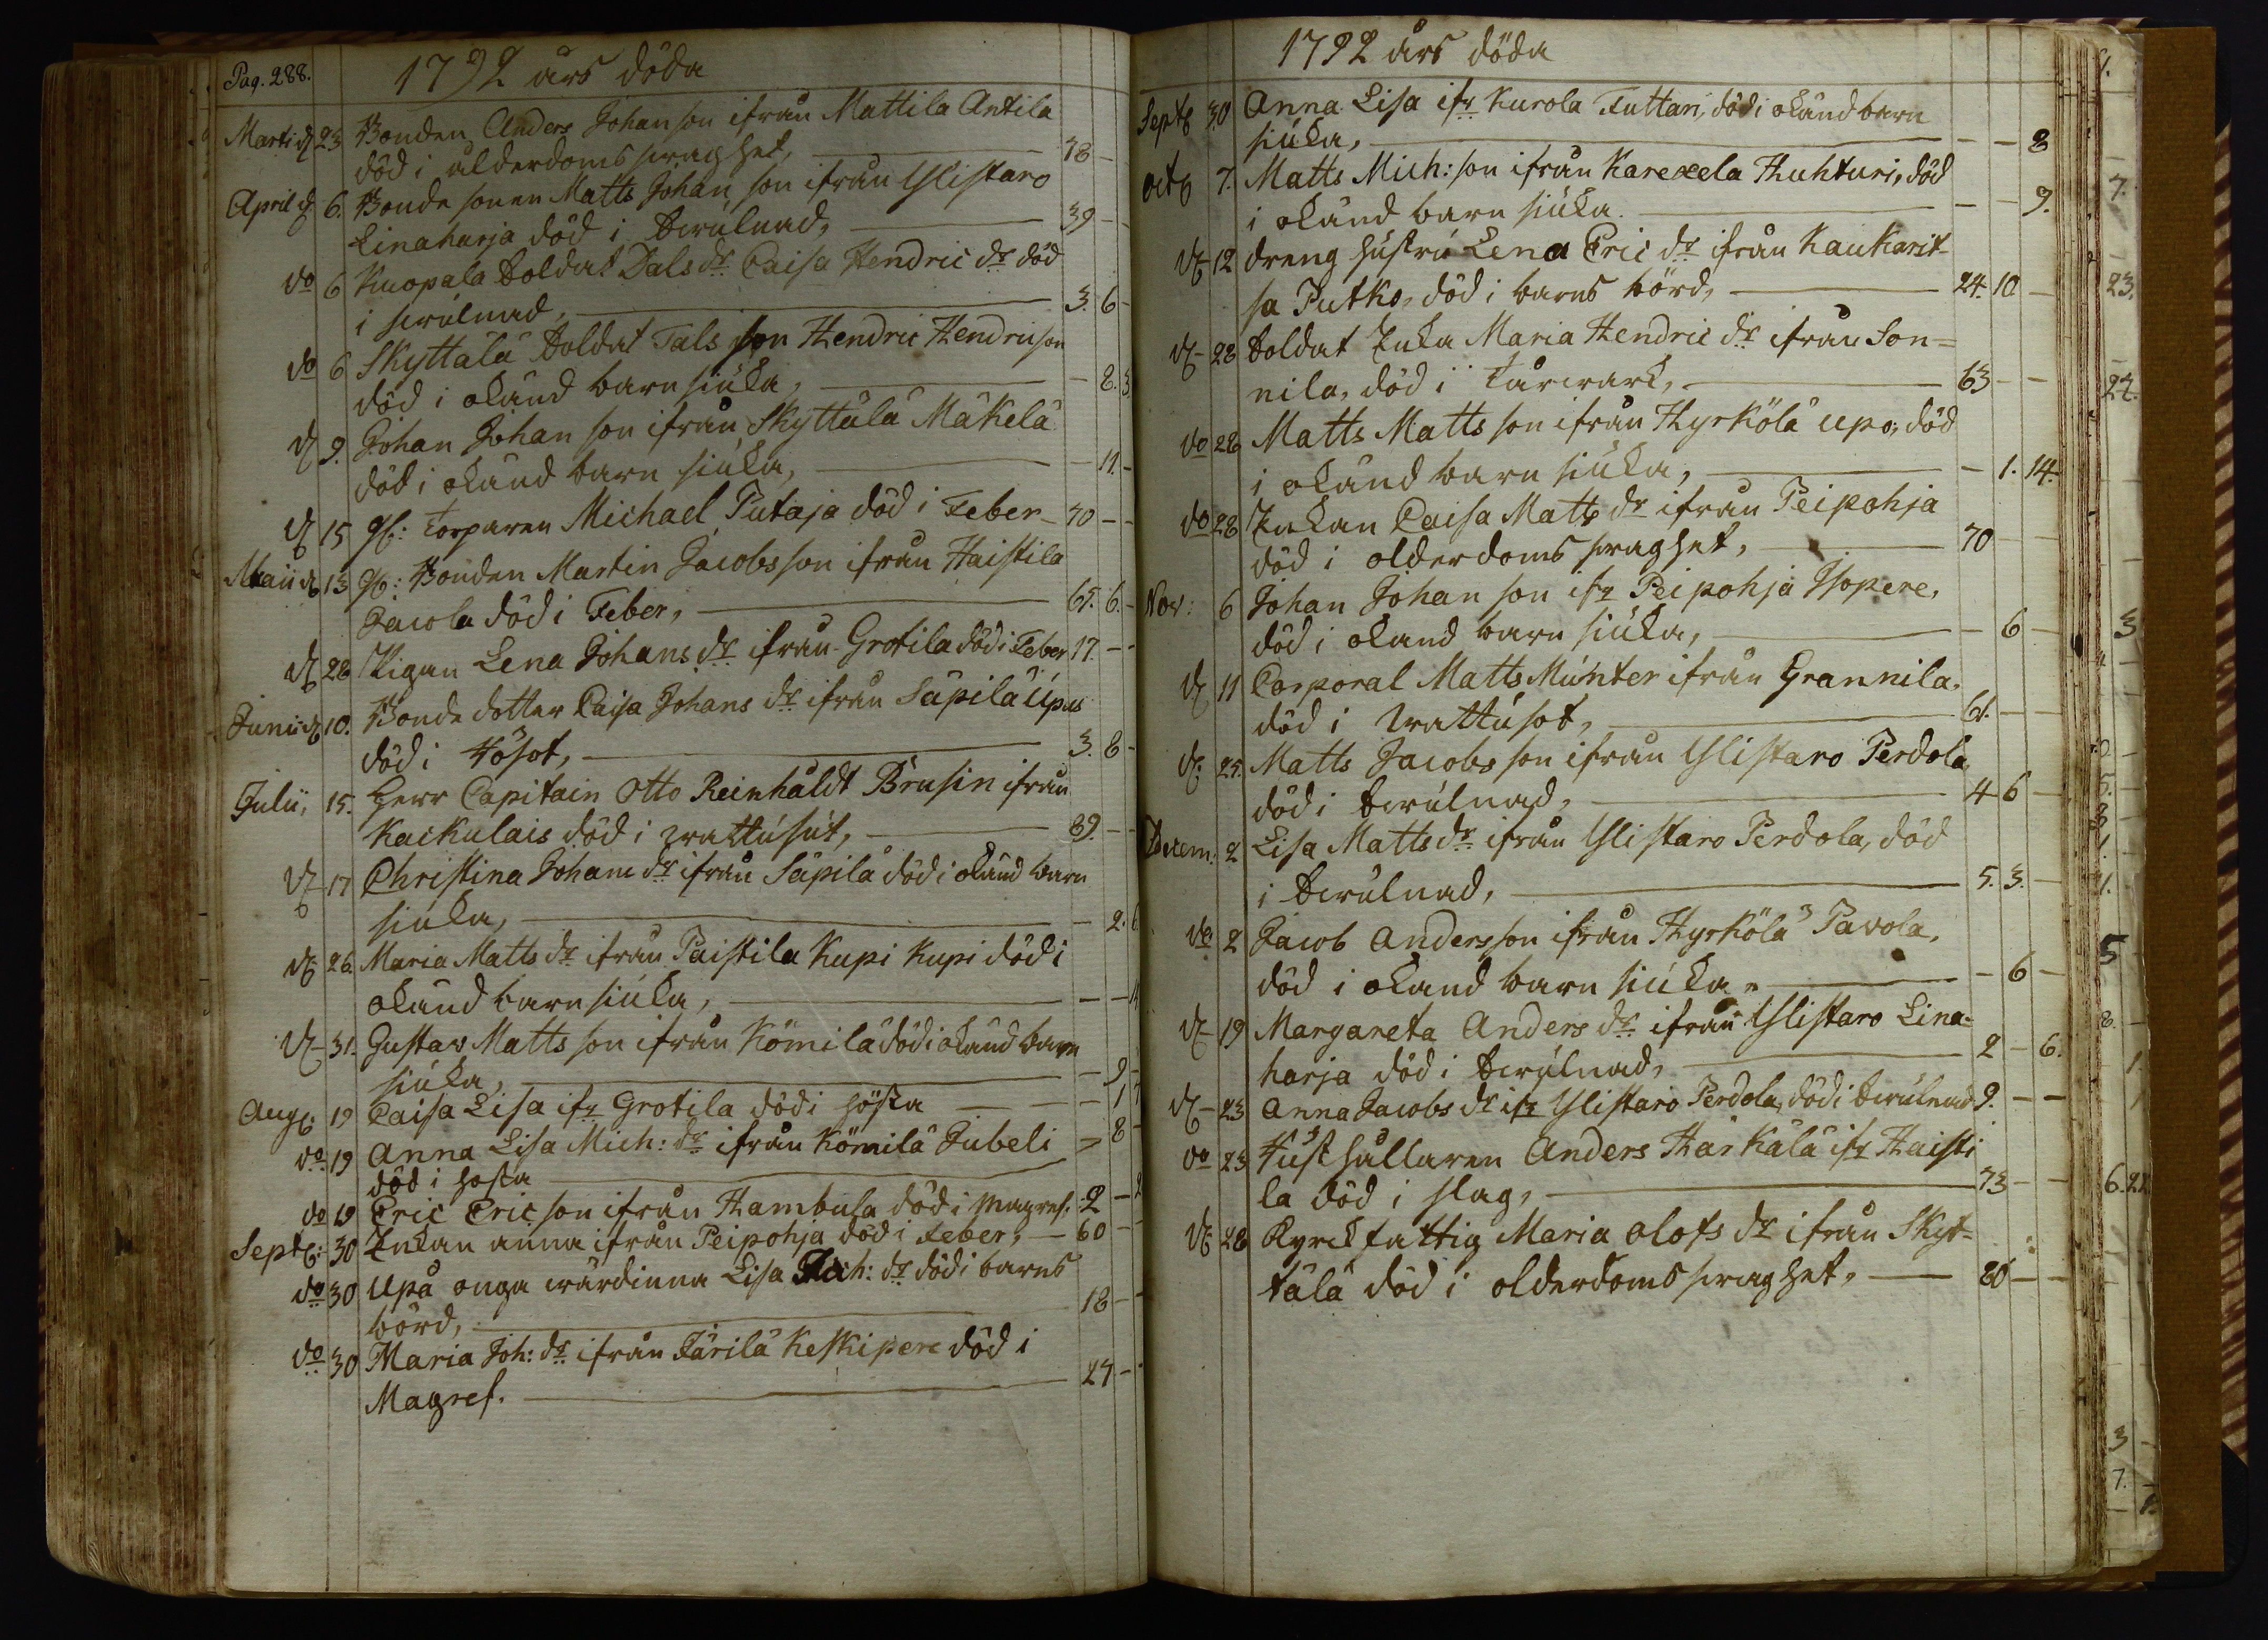 Pag. 288.
1792 års döda
Martii d 23 Bonden Anders Johan son ifrån Mattila Antila
död i ålderdoms swaghet, 78 -
April d 6. Bonde sonen Matts Johan son ifrån Ylistaro
Linaharja död i swulnad, 39 - -
do 6 Kuopala Soldat Dals dr Caisa Hendric dr död
i swulnad, 3. 6 -
do 6 Skyttälä Soldat Tals son Hendric Hendricson
död i okänd barn siuka, - 8. 3
d 9. Johan Johan son ifrån Skyttälä Mäkelä
död i okänd barn siuka, - 11. -
d 15 gl: Torparen Michael Putaja död i Feber - 70 - -
Maii d 13 gl: Bonden Martin Jacobs son ifrån Haistila
Jacola död i Feber, 65. 6. -
d 28 Pigan Lena Johans dr ifrån Grotila död i Feber 17. - -
Junii d 10. Bonde dotter Caisa Johans dr ifrån Säpilä Upas
död i Kösot, 3. 8 -
Julii, 15. Herr Capitain Otto Reinhåldt Brusin ifrån
Kackulais död i wattusut, 89. - -
d 17 Christina Johans dr ifrån Säpilä död i okänd barn
siuka, - 2. 6
d 26. Maria Matts dr ifrån Paistila Kupi Kupi död i
okänd barn siuka, - - 14
d 31. Gustav Matts son ifrån Kömilä död i okänd barn
siuka, - 9 -
Aug: 19 Caisa Lisa ifr Grotila död i hösta - - 1 7
do 19 Anna Lisa Mich: dr ifrån Kömilä Jubeli - 8 -
död i hosta
do 19 Eric Eric son ifrån Hambula död i Magref. 2 - 2
Septe: 30 Enkan anna ifrån Peipohja död i Feber, 60 - -
do 30 Upå onga wärdinna Lisa Mich: dr död i barns
börd, 18 - -
do 30 Maria Joh: dr ifrån Järilä Keskipere död i
Magref. 27 -
1792 års döda
Septb 30 Anna Lisa ifr Kurola Futtari, död i okänd barn
siuka, - - 8
octb 7. Matts Mich: son ifrån Karexela Huhturi, död
i okänd barn siuka. - - 9.
d 12 dreng hustru Lena Eric dr ifrån Kaukarit-
sa Putko, död i barns börd, 24. 10 -
d 28 Soldat Enka Maria Hendric dr ifrån Son=
nila, död i Tärwark, 63 - -
do 28 Matts Matts son ifrån Hyrkölä upo, död
i okänd barn siuka, - 1. 14.
do 28 Enkan Caisa Matts dr ifrån Peipohja
död i olderdoms swaghet, 70 - -
Nov: 6 Johan Johan son ifr Peipohja Isopere,
död i okänd barn siuka, - 6 -
d 11 Corporal Matts Munter ifrån Grannila,
död i wattusot, 61. - -
d 25. Matts Jacobs son ifrån Ylistaro Perdola,
död i swulnad, 4 6 -
Decem: 2 Lisa Matts dr ifrån Ylistaro Perdola, död
i swulnad, 5. 3. -
do 2 Jacob Andersson ifrån Hyrkölä Pavola,
död i okand barn siuka, - 6 -
d 19 Margareta Anders dr ifrån Ylistaro Lina=
harja död i swulnad, 2 - 6.
d 23 Anna Jacobs dr ifr Ylistaro Perdola, död i swulnad 9. - -
do 23 Husthållaren Anders Harkälä ifr Haisti
la död i slag, 73 - -
d 28 Kyrckfattig Maria olofs dr ifrån Skyt=
tälä död i olderdoms swaghet, 80 - -